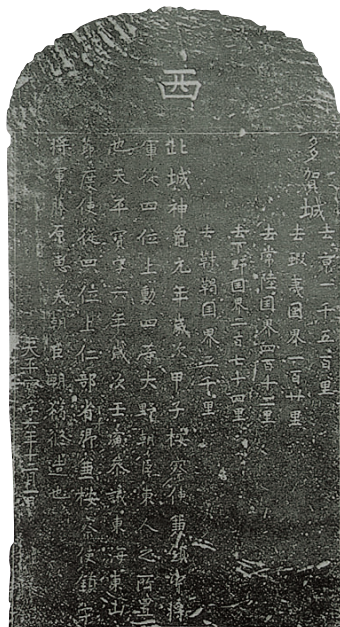 西
多賀城
去京一千五百里
去蝦夷國界一百廿里
去常陸國界四百十二里
去下野國界二百七十四里
去靺鞨國界三千里
此城神龜元年歲次甲子按察使兼鎮守將
軍從四位上勳四等大野朝臣東人之所置
也天平寶字六年歲次壬寅參議東海東山
節度使從四位上仁部省卿兼按察使鎮守
將軍藤原惠美朝臣朝獦修造也
天平寶字六年十二月一日